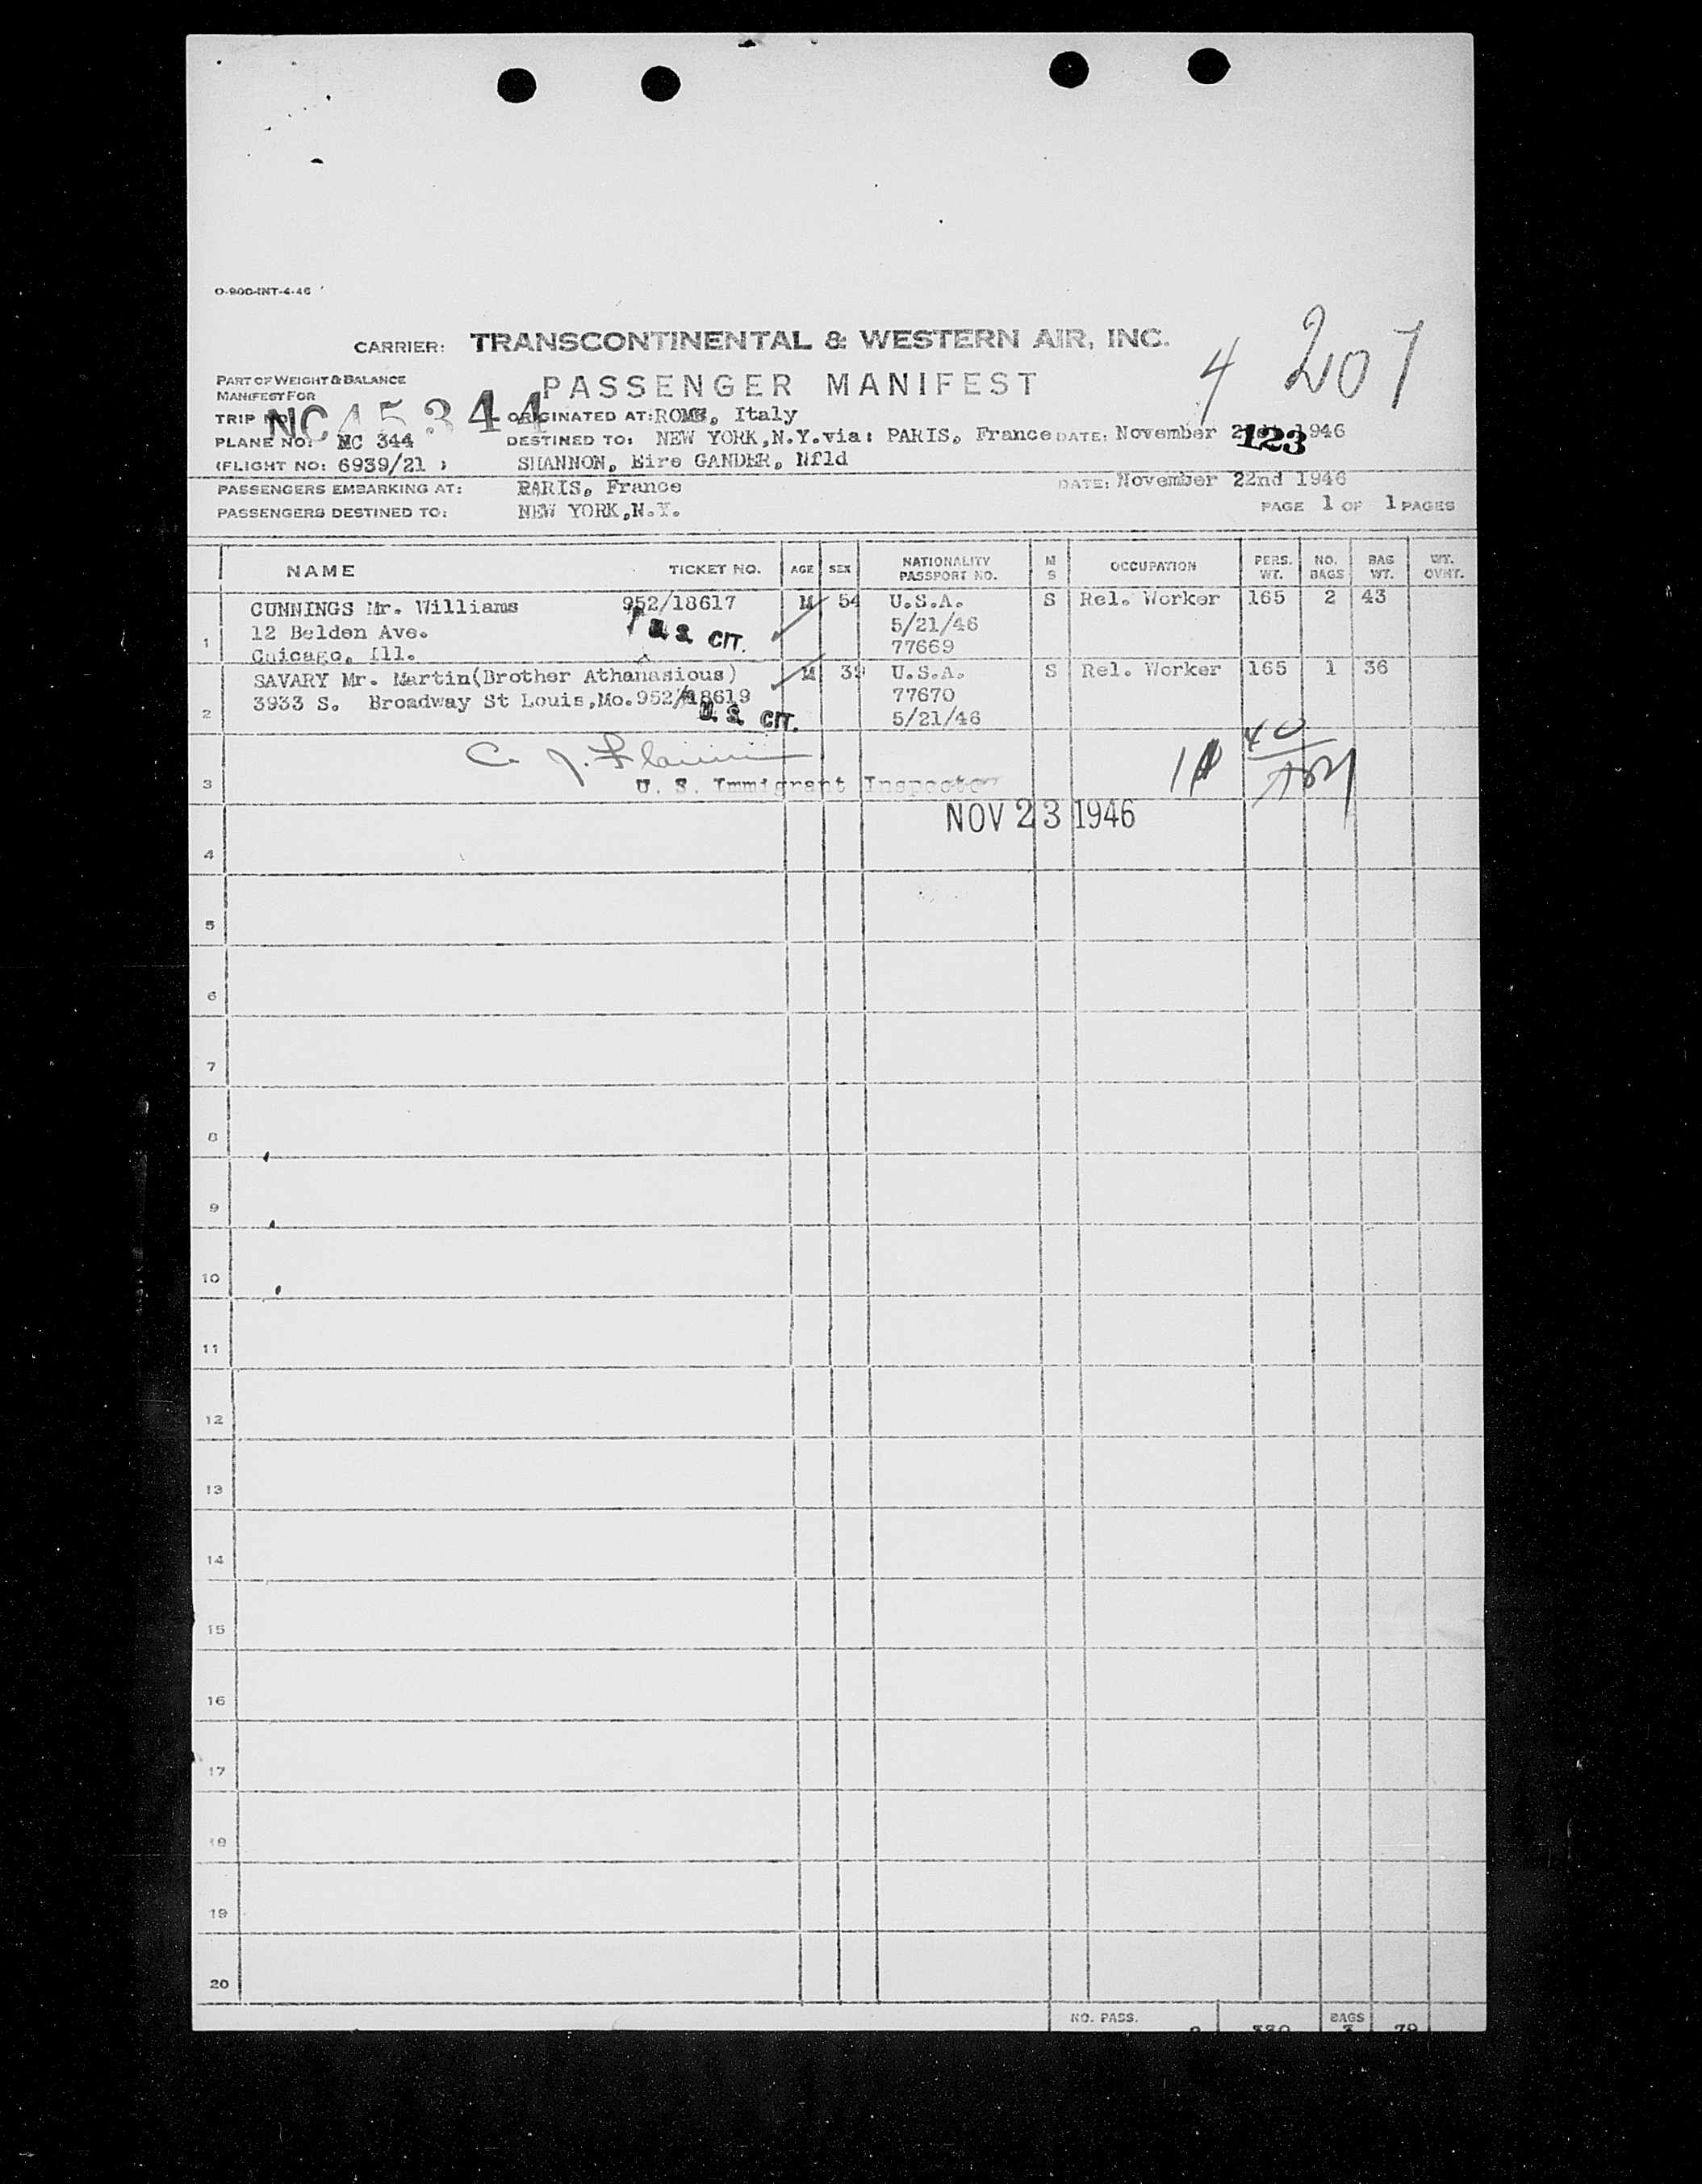 O-900-INT-4-46
4 207
CARRIER: TRANSCONTINENTAL & WESTERN AIR, INC.
PART OF WEIGHT & BALANCE
MANIFEST FOR
PASSENGER MANIFEST
TRIP NC 45344 ORIGINATED AT: ROME, Italy
PLANE NO: NC 344 DESTINED TO: NEW YORK,N.Y.via: PARIS, France DATE: November 1946
123
(FLIGHT NO: 6939/21 ) SHANNON, Eire GANDER, Nfld
PASSENGERS EMBARKING AT: PARIS, France DATE: November 22nd 1946
PASSENGERS DESTINED TO: NEW YORK,N.Y. PAGE 1 OF 1 PAGES
NAME TICKET NO. AGE SEX NATIONALITY PASSPORT NO. M S OCCUPATION PERS. WT. NO. BAGS BAG WT. WT. OVHT.
CUNNINGS Mr. Williams 952/18617 M 54 U.S.A. S Rel. Worker 165 2 43
12 Belden Ave. U.S. CIT. 5/21/46
1 Chicago, Ill. 77669
SAVARY Mr. Martin(Brother Athanasious) M 39 U.S.A. S Rel. Worker 165 1 36
3933 S. Broadway St Louis,Mo.952/18619 77670
2 U.S. CIT. 5/21/46
C. J.
3 U. S. Immigrant Inspector
NOV 23 1946
4
5
6
7
8
9
10
11
12
13
14
15
16
17
18
19
20
NO. PASS. 2 330 BAGS 3 79